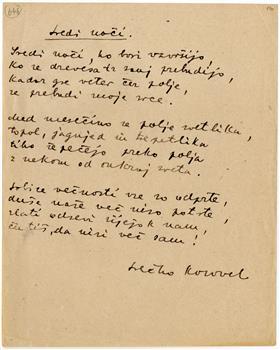 Sredi noči.
Sredi noči, ko bori vzvršijo,
ko se drevesa iz sanj prebudijo,
kadar gre veter čez polje,
se prebudi moje srce.
Med mesečino se polje svetlika,
topol, jagnjed in trepetlika
tiho šepečejo preko polja
z nekom od onkraj sveta.
večnosti so odprte,
duše naše več niso potrte,
zlati odsevi k nam,
čutiš, da nisi več sam!
Srečko Kosovel